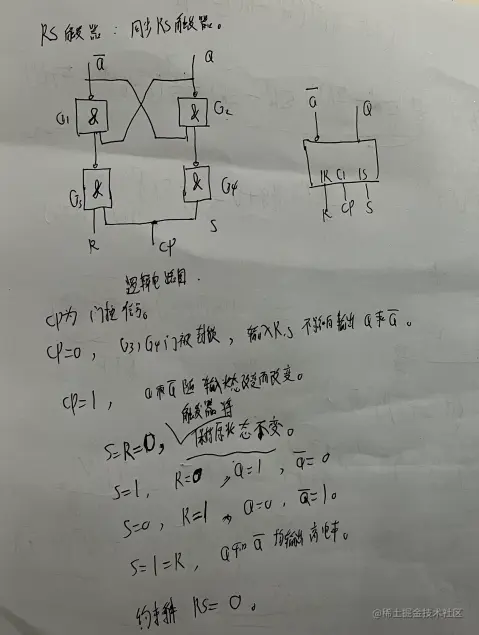 RS触发器：同步RS触发器。
Q̅ Q
G1 & & G2
Q̅ Q
G3 & & G4
1R C1 1S
R CP S
R CP S
逻辑电路图.
CP为 门控信号。
CP=0, G3,G4门被封锁, 输入R.S 不影响输出 Q和Q̅。
CP=1, Q和Q̅ 随 输入状态改变而改变。
触发器将
S=R=0, 保持原状态不变。
S=1, R=0, Q=1, Q̅=0
S=0, R=1, Q=0, Q̅=1。
S=1=R, Q和Q̅ 均输出高电平。
约束条件 RS=0。
@稀土掘金技术社区